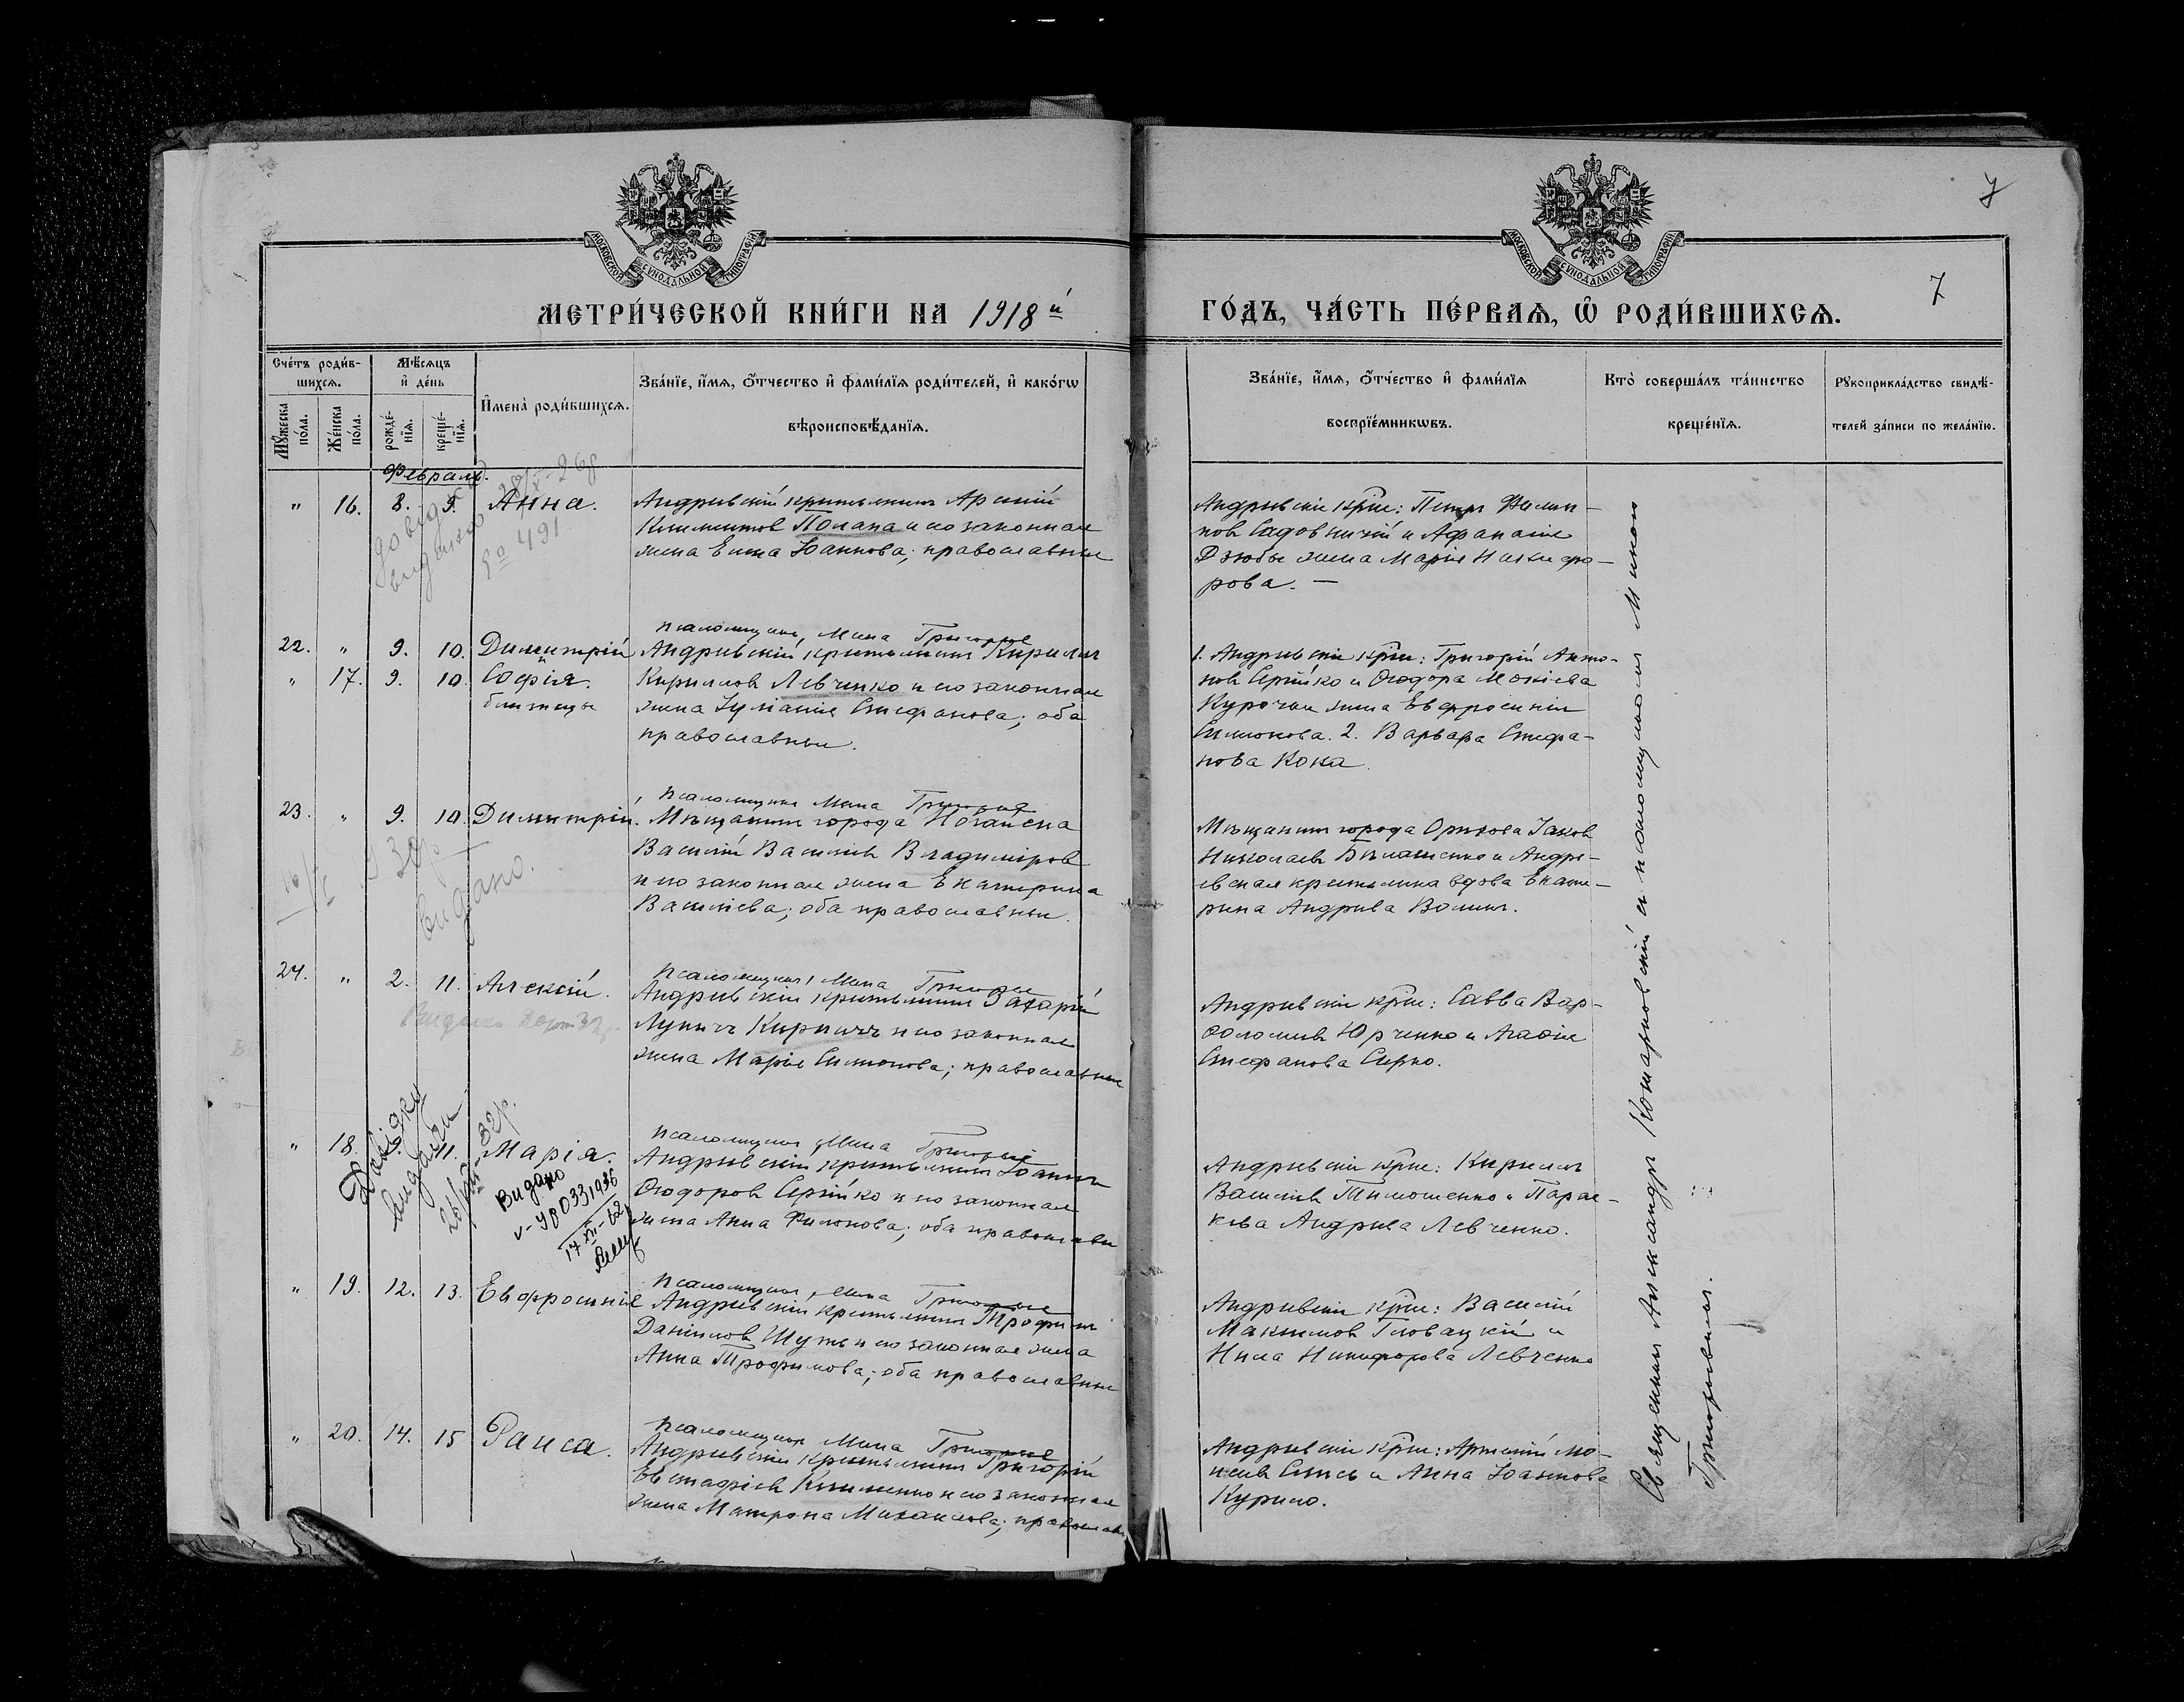 7
МОСКОВСКОЙ СУНОДАЛЬНОЙ ТИПОГРАФІИ
МОСКОВСКОЙ СУНОДАЛЬНОЙ ТИПОГРАФІИ
7
МЕТРИ́ЧЕСКОЙ КНИ́ГИ НА 1918 й
ГО́ДЪ, ЧА́СТЬ ПЕ́РВАѦ, Ѽ РОДИ́ВШИХСѦ.
Сче́тъ роди́в-
шихсѧ.
Мꙋ́жеска по́ла.
Же́нска по́ла.
Мѣ́сѧцъ
и҆ де́нь
рожде́-нїѧ.
креще́-нїѧ.
И҆мена̀ роди́вшихсѧ.
Зва́нїе, и҆́мѧ, ѻ҆́тчество и҆ фами́лїѧ роди́телей, и҆ како́гѡ
вѣроисповѣ́данїѧ.
Зва́нїе, и҆́мѧ, ѻ҆́тчество и҆ фами́лїѧ
воспрїе́мникѡвъ.
Кто̀ соверша́лъ та́инство
креще́нїѧ.
Рꙋкоприкла́дство свидѣ́-
телей за́писи по жела́нїю.
Февраль.
" 16. 8. 9. Анна.
Андреевскій крестьянинъ Арсеній
Климентовъ Полапа и его законная
жена Елена Іоаннова; православные
Андреевскіе кр̃не: Петръ Филип-
повъ Садовничій и Афанасія
Дзюбы жена Марія Никифо-
рова. —
№ 491
22. " 9. 10. Димитрій
и
" 17. 9. 10. Софія.
близнецы
псаломщикъ, Мина Григорьевъ
Андреевскій крестьянинъ Кириллъ
Кирилловъ Левченко и его законная
жена Іуліанія Стефанова; оба
православные.
1. Андреевскіе кр̃не: Григорій Анто-
новъ Сергійко и Ѳеодора Мокіева
Курочки жена Евфросинія
Симонова. 2. Варвара Стефа-
нова Кока.
23. " 9. 10. Димитрій.
псаломщикъ Мина Григорьевъ
Мѣщанинъ города Ногайска
Василій Василіевъ Владиміровъ
и его законная жена Екатерина
Василіева; оба православные.
Мѣщанинъ города Орѣхова Іаковъ
Николаевъ Білашенко и Андре-
евская крестьянка вдова Екате-
рина Андреева Воликъ.
видано.
24. " 2. 11. Алексій.
псаломщикъ, Мина Григорьевъ
Андреевскій крестьянинъ Захарій
Лукичъ Киричъ и его законная
жена Марія Симонова; православные
Андреевскіе кр̃не: Савва Вар-
ѳоломіевъ Юрченко и Агаѳія
Стефанова Сирко.
" 18. 9. 11. Марія.
Довідку
видано
Видано
V-ЯР 0331936
17 XII-62
псаломщикъ Мина Григорьевъ
Андреевскій крестьянинъ Іоаннъ
Ѳеодоровъ Сергійко и его законная
жена Анна Филонова; оба православн
Андреевскіе кр̃не: Кириллъ
Василіевъ Тимошенко и Парас-
кева Андреева Левченко.
" 19. 12. 13. Евфросинія
псаломщикъ, Мина Григорьевъ
Андреевскій крестьянинъ Трофимъ
Даніиловъ Шуть и его законная жена
Анна Трофимова; оба православные
Андреевскіе кр̃не: Василій
Максимовъ Гловацкій и
Нила Никифорова Левченко
" 20. 14. 15 Раиса.
псаломщикъ Мина Григорьевъ
Андреевскій крестьянинъ Григорій
Евстафіевъ Клименко и его законная
жена Матрона Михаилова; православн
Андреевскіе кр̃не: Арсеній Мо-
исеевъ Стась и Анна Іоаннова
Курило.
Священникъ Александръ Комарновскій и псаломщикомъ Миною
Григорьевымъ.